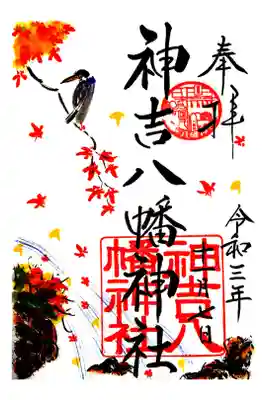 奉拝
令和三年
十一月七日
神吉八幡神社
神吉八
幡神社